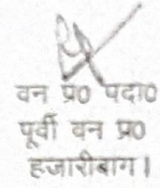 वन प्र0 पदा0
पूर्वी वन प्र0
हजारीबाग।